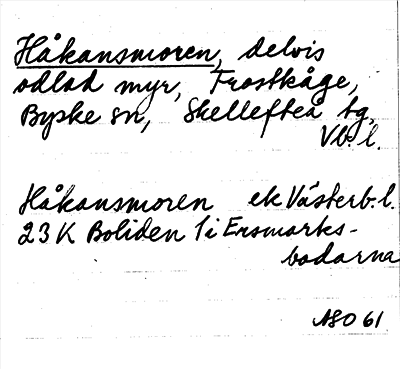 Håkansmoren, delvis
odlad myr, Frostkåge,
Byske sn, Skellefteå tg,
Vb. l.
Håkansmoren ek Västerb. l.
23 K Boliden 1 i Ersmarks-
bodarna
ASO 61